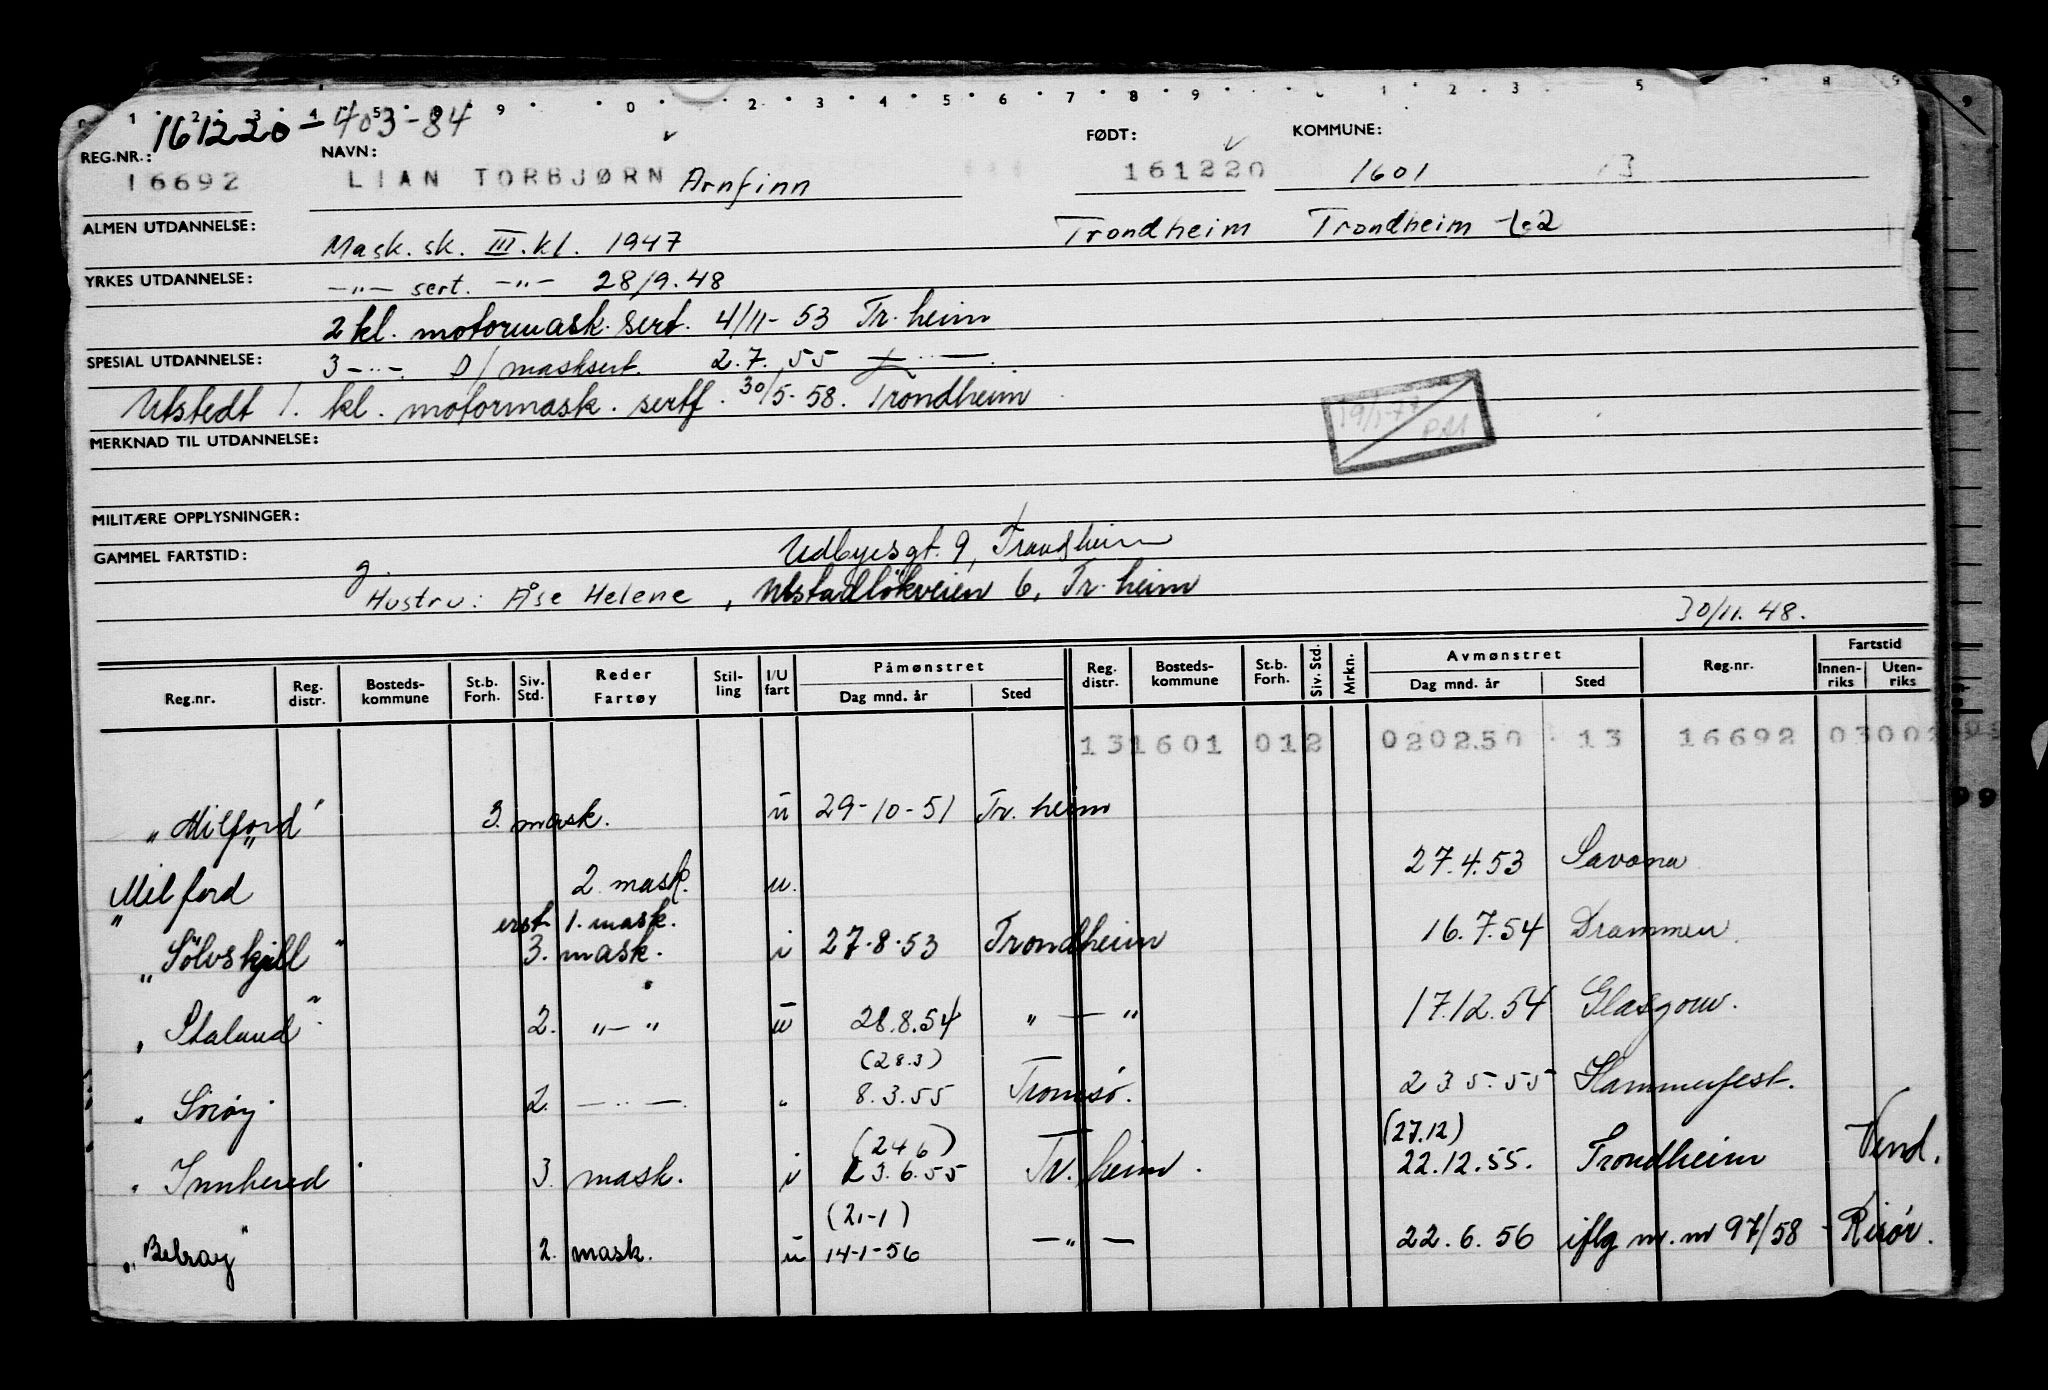 161220-403-84
REG.NR.: NAVN: FØDT: KOMMUNE:
16692 LIAN TORBJØRN Arnfinn 161220 1601 13
ALMEN UTDANNELSE: Trondheim Trondheim
Mask. sk. III. kl. 1947
YRKES UTDANNELSE: -"- sert. -"- 28/9.48
2 kl. motormask. sert. 4/11-53 Tr.heim
SPESIAL UTDANNELSE: 3 -"- D/masksert. 2.7.55 -"-
Utstedt 1. kl. motormask. sertf. 30/5-58. Trondheim
MERKNAD TIL UTDANNELSE:
MILITÆRE OPPLYSNINGER:
GAMMEL FARTSTID: Udbyesgt. 9, Trondheim
g. Hustru: Åse Helene, Ulstadløkveien 6, Tr.heim
30/11.48.
Reg.nr. Reg. distr. Bosteds- kommune St.b. Forh. Siv. Std. Reder Fartøy Stil- ling I/U fart Påmønstret Dag mnd. år Sted Reg. distr. Bosteds- kommune St.b. Forh. Siv. Std. Mrkn. Avmønstret Dag mnd. år Sted Reg.nr. Fartstid Innen- riks Uten- riks
131601 012 020250 13 16692
"Milford" 3. mask. u 29-10-51 Tr. heim
Milford 2. mask. u. 27.4.53 Savona
erst. 1. mask.
"Sölvskjell" 3. mask. i 27-8-53 Trondheim 16.7.54 Drammen
"Staland" 2. "-" u 28.8.54 "-" 17.12.54 Glasgow.
(28.3)
"Sörøy" 2. -"- " 8.3.55 Tromsö. 23.5.55 Hammerfest.
(24.6) (27.12)
"Innhered" 3. mask. i 23.6.55 Tr.heim. 22.12.55. Trondheim Vend.
(21-1)
"Belray" 2. mask. u 14-1-56 -"- 22.6.56 iflg m.m 97/58 - Risör.